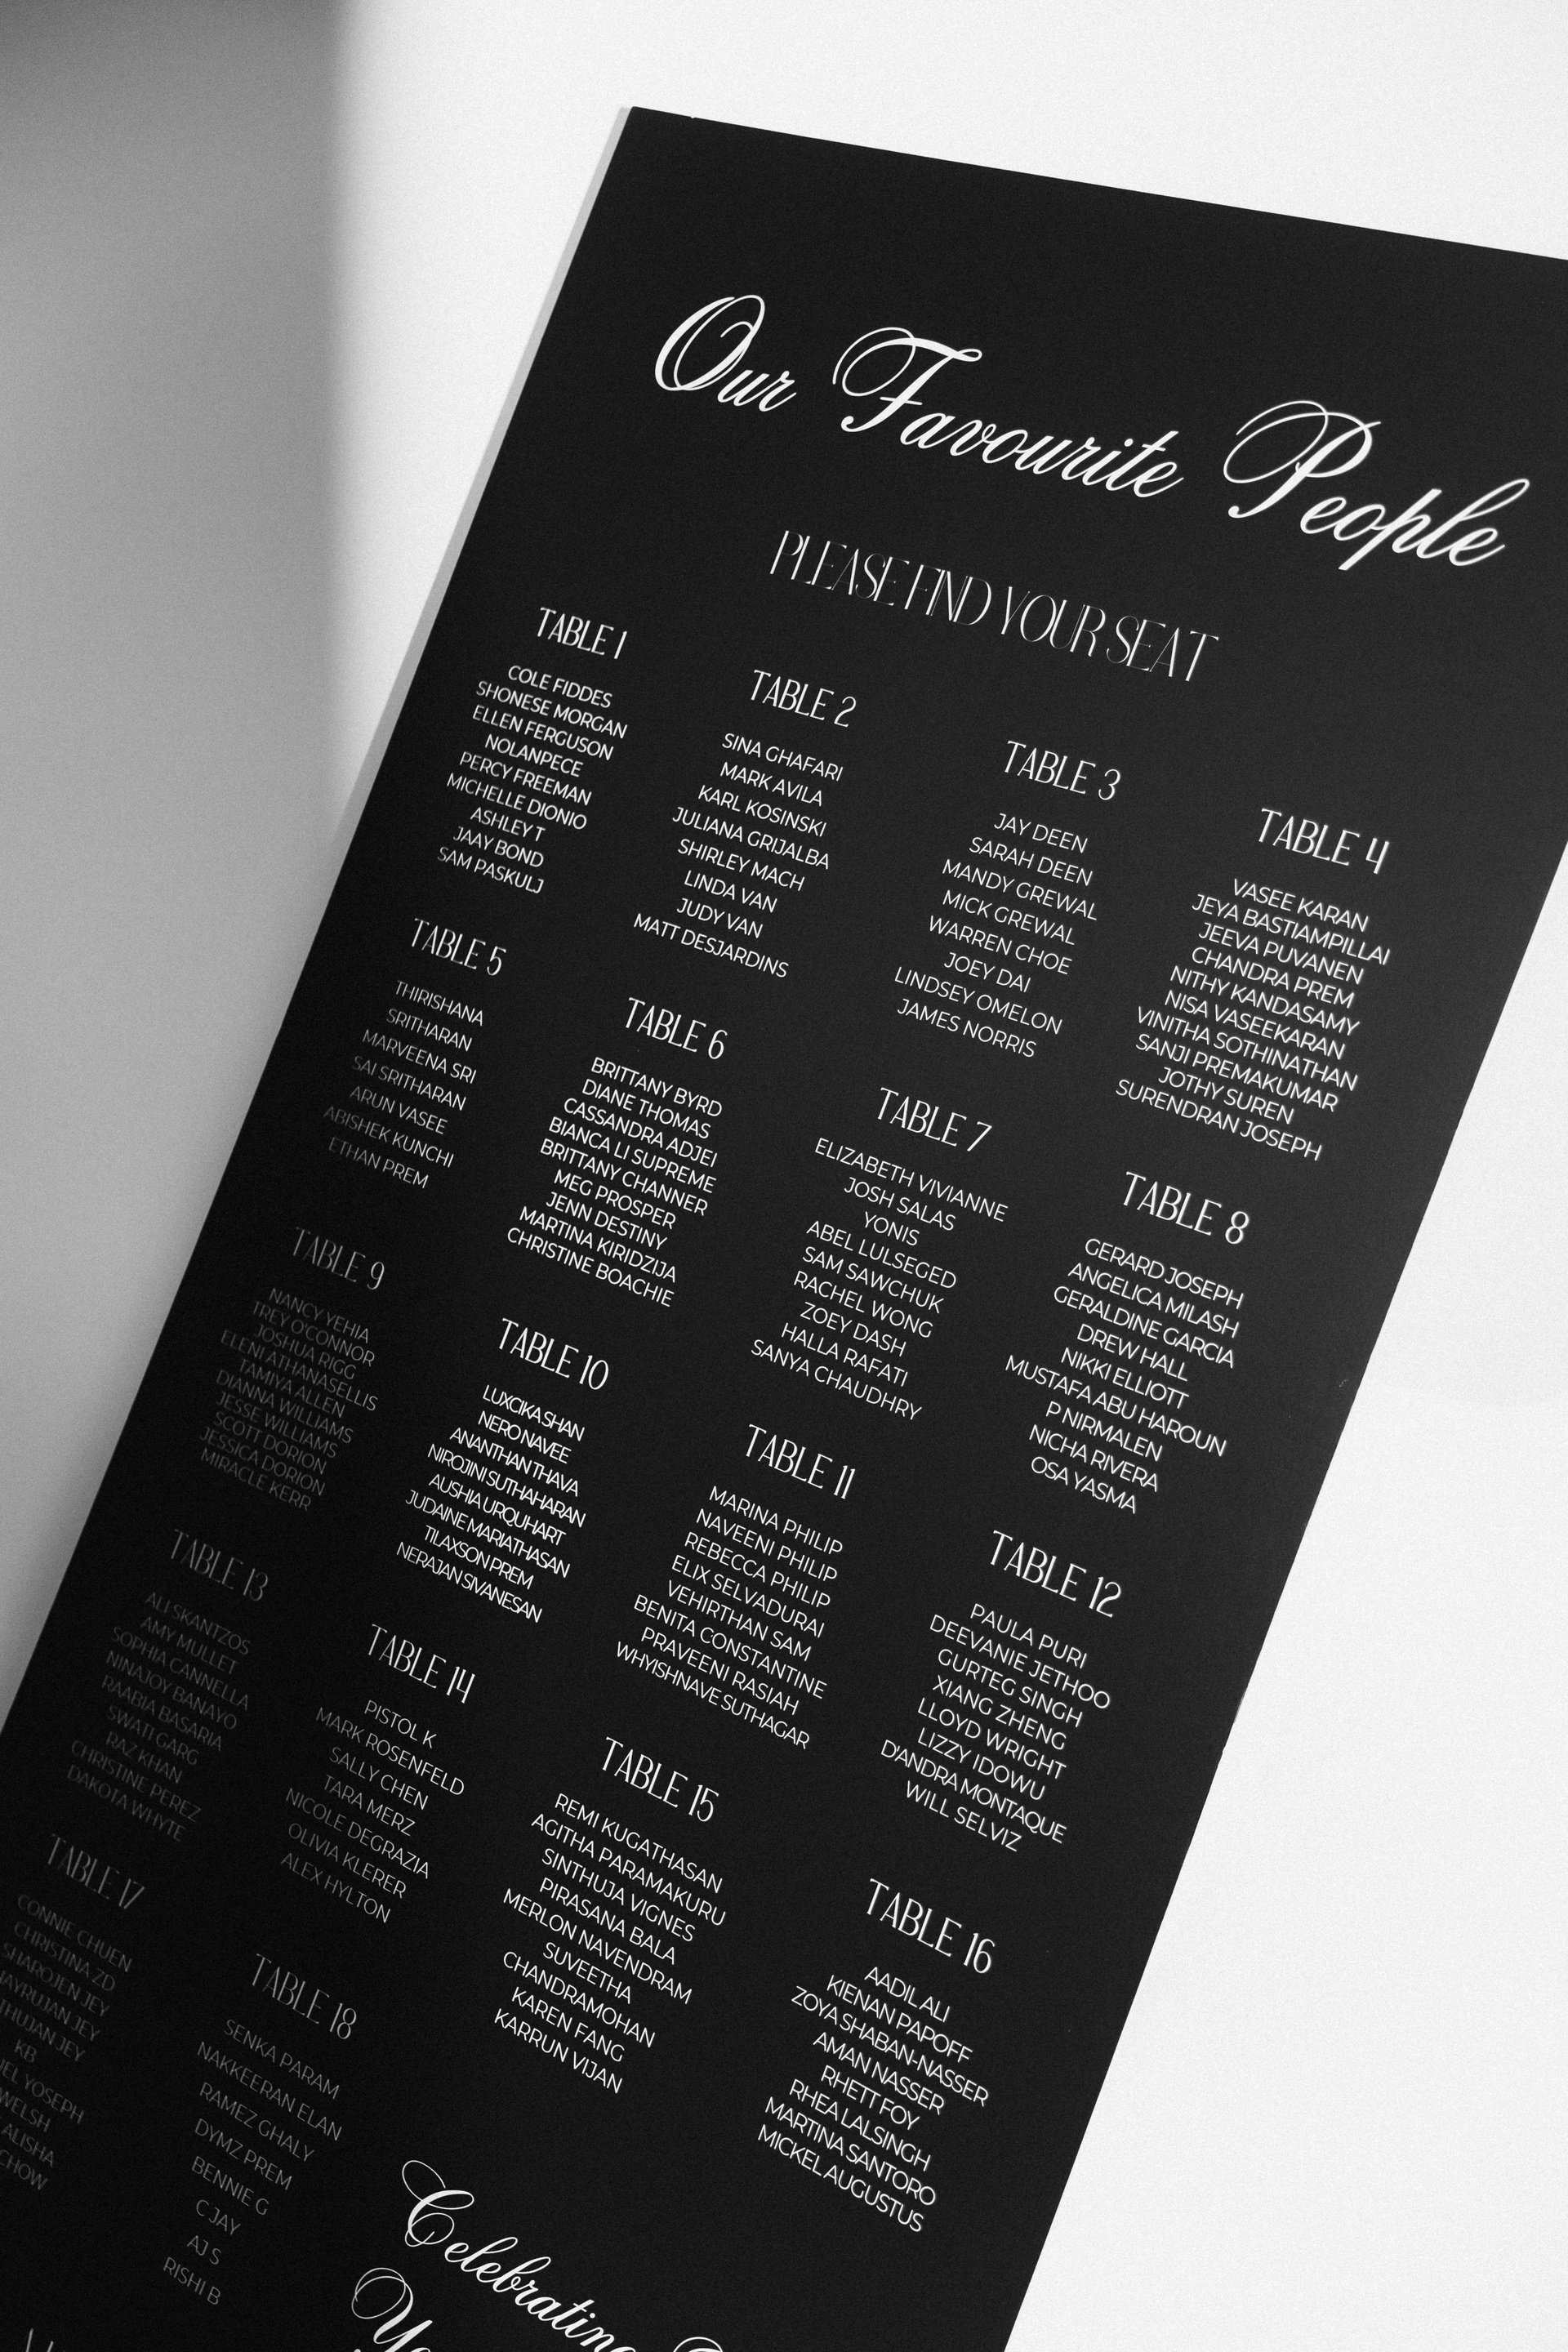 Our Favourite People
PLEASE FIND YOUR SEAT
TABLE 1
COLE FIDDES
SHONESE MORGAN
ELLEN FERGUSON
NOLANPECE
PERCY FREEMAN
MICHELLE DIONIO
ASHLEY T
JAAY BOND
SAM PASKULJ
TABLE 2
SINA GHAFARI
MARK AVILA
KARL KOSINSKI
JULIANA GRIJALBA
SHIRLEY MACH
LINDA VAN
JUDY VAN
MATT DESJARDINS
TABLE 3
JAY DEEN
SARAH DEEN
MANDY GREWAL
MICK GREWAL
WARREN CHOE
JOEY DAI
LINDSEY OMELON
JAMES NORRIS
TABLE 4
VASEE KARAN
JEYA BASTIAMPILLAI
JEEVA PUVANEN
CHANDRA PREM
NITHY KANDASAMY
NISA VASEEKARAN
VINITHA SOTHINATHAN
SANJI PREMAKUMAR
JOTHY SUREN
SURENDRAN JOSEPH
TABLE 5
THIRISHANA
SRITHARAN
MARVEENA SRI
SAI SRITHARAN
ARUN VASEE
ABISHEK KUNCHI
ETHAN PREM
TABLE 6
BRITTANY BYRD
DIANE THOMAS
CASSANDRA ADJEI
BIANCA LI SUPREME
BRITTANY CHANNER
MEG PROSPER
JENN DESTINY
MARTINA KIRIDZIJA
CHRISTINE BOACHIE
TABLE 7
ELIZABETH VIVIANNE
JOSH SALAS
YONIS
ABEL LULSEGED
SAM SAWCHUK
RACHEL WONG
ZOEY DASH
HALLA RAFATI
SANYA CHAUDHRY
TABLE 8
GERARD JOSEPH
ANGELICA MILASH
GERALDINE GARCIA
DREW HALL
NIKKI ELLIOTT
MUSTAFA ABU HAROUN
P NIRMALEN
NICHA RIVERA
OSA YASMA
TABLE 9
NANCY YEHIA
TREY O'CONNOR
JOSHUA RIGG
ELENI ATHANASELLIS
TAMIYA ALLEN
DIANNA WILLIAMS
JESSE WILLIAMS
SCOTT DORION
JESSICA DORION
MIRACLE KERR
TABLE 10
LUXCIKA SHAN
NERO NAVEE
ANANTHAN THAVA
NIROJINI SUTHAHARAN
AUSHIA URQUHART
JUDAINE MARIATHASAN
TILAXSON PREM
NERAJAN SIVANESAN
TABLE 11
MARINA PHILIP
NAVEENI PHILIP
REBECCA PHILIP
ELIX SELVADURAI
VEHIRTHAN SAM
BENITA CONSTANTINE
PRAVEENI RASIAH
WHYISHNAVE SUTHAGAR
TABLE 12
PAULA PURI
DEEVANIE JETHOO
GURTEG SINGH
XIANG ZHENG
LLOYD WRIGHT
LIZZY IDOWU
D'ANDRA MONTAQUE
WILL SELVIZ
TABLE 13
ALI SKANTZOS
AMY MULLET
SOPHIA CANNELLA
NINAJOY BANAYO
RAABIA BASARIA
SWATI GARG
RAZ KHAN
CHRISTINE PEREZ
DAKOTA WHYTE
TABLE 14
PISTOL K
MARK ROSENFELD
SALLY CHEN
TARA MERZ
NICOLE DEGRAZIA
OLIVIA KLERER
ALEX HYLTON
TABLE 15
REMI KUGATHASAN
AGITHA PARAMAKURU
SINTHUJA VIGNES
PIRASANA BALA
MERLON NAVENDRAM
SUVEETHA
CHANDRAMOHAN
KAREN FANG
KARRUN VIJAN
TABLE 16
AADIL ALI
KIENAN PAPOFF
ZOYA SHABAN-NASSER
AMAN NASSER
RHETT FOY
RHEA LALSINGH
MARTINA SANTORO
MICKEL AUGUSTUS
TABLE 17
CONNIE CHUEN
CHRISTINA ZD
SHAROJEN JEY
JEY
JEY
KB
YOSEPH
WELSH
ALISHA
CHOW
TABLE 18
SENKA PARAM
NAKKEERAN ELAN
RAMEZ GHALY
DYMZ PREM
BENNIE G
C JAY
AJ S
RISHI B
Celebrating